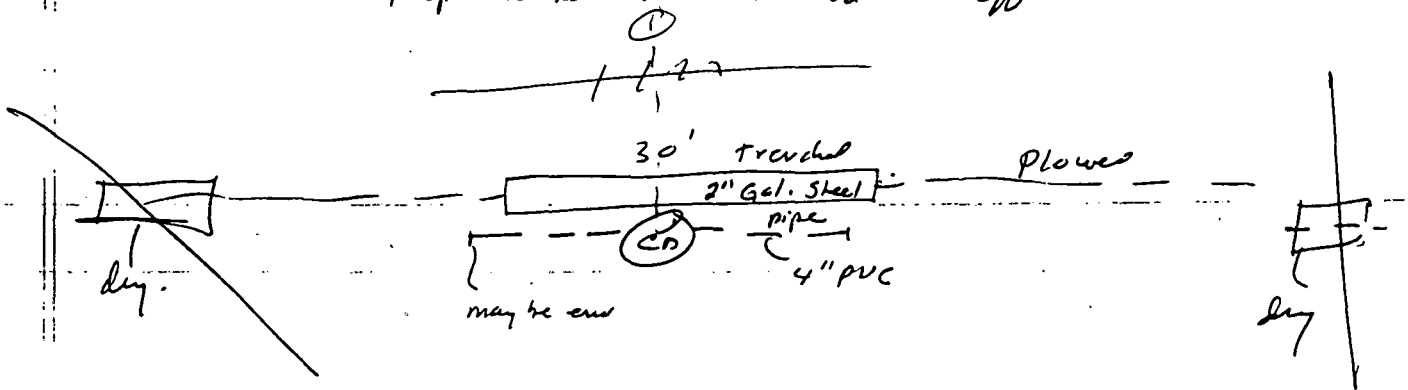 ①
30' trenched
Plowed
2" Gal. Steel
pipe
CB
4" PVC
dry.
may be end
dry